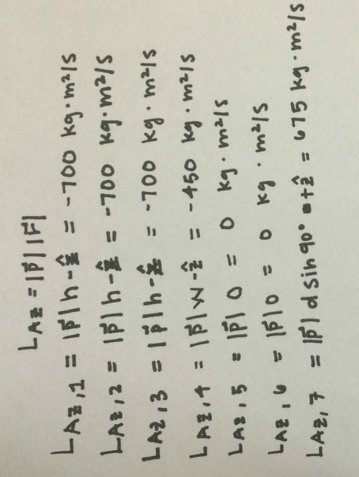 L_AZ = |p⃗| |r⃗|
L_AZ,1 = |p⃗| h - ẑ = -700 kg · m²/s
L_AZ,2 = |p⃗| h - ẑ = -700 kg · m²/s
L_AZ,3 = |p⃗| h - ẑ = -700 kg · m²/s
L_AZ,4 = |p⃗| w - ẑ = -450 kg · m²/s
L_AZ,5 = |p⃗| 0 = 0 kg · m²/s
L_AZ,6 = |p⃗| 0 = 0 kg · m²/s
L_AZ,7 = |p⃗| d sin 90° • +ẑ = 675 kg · m²/s